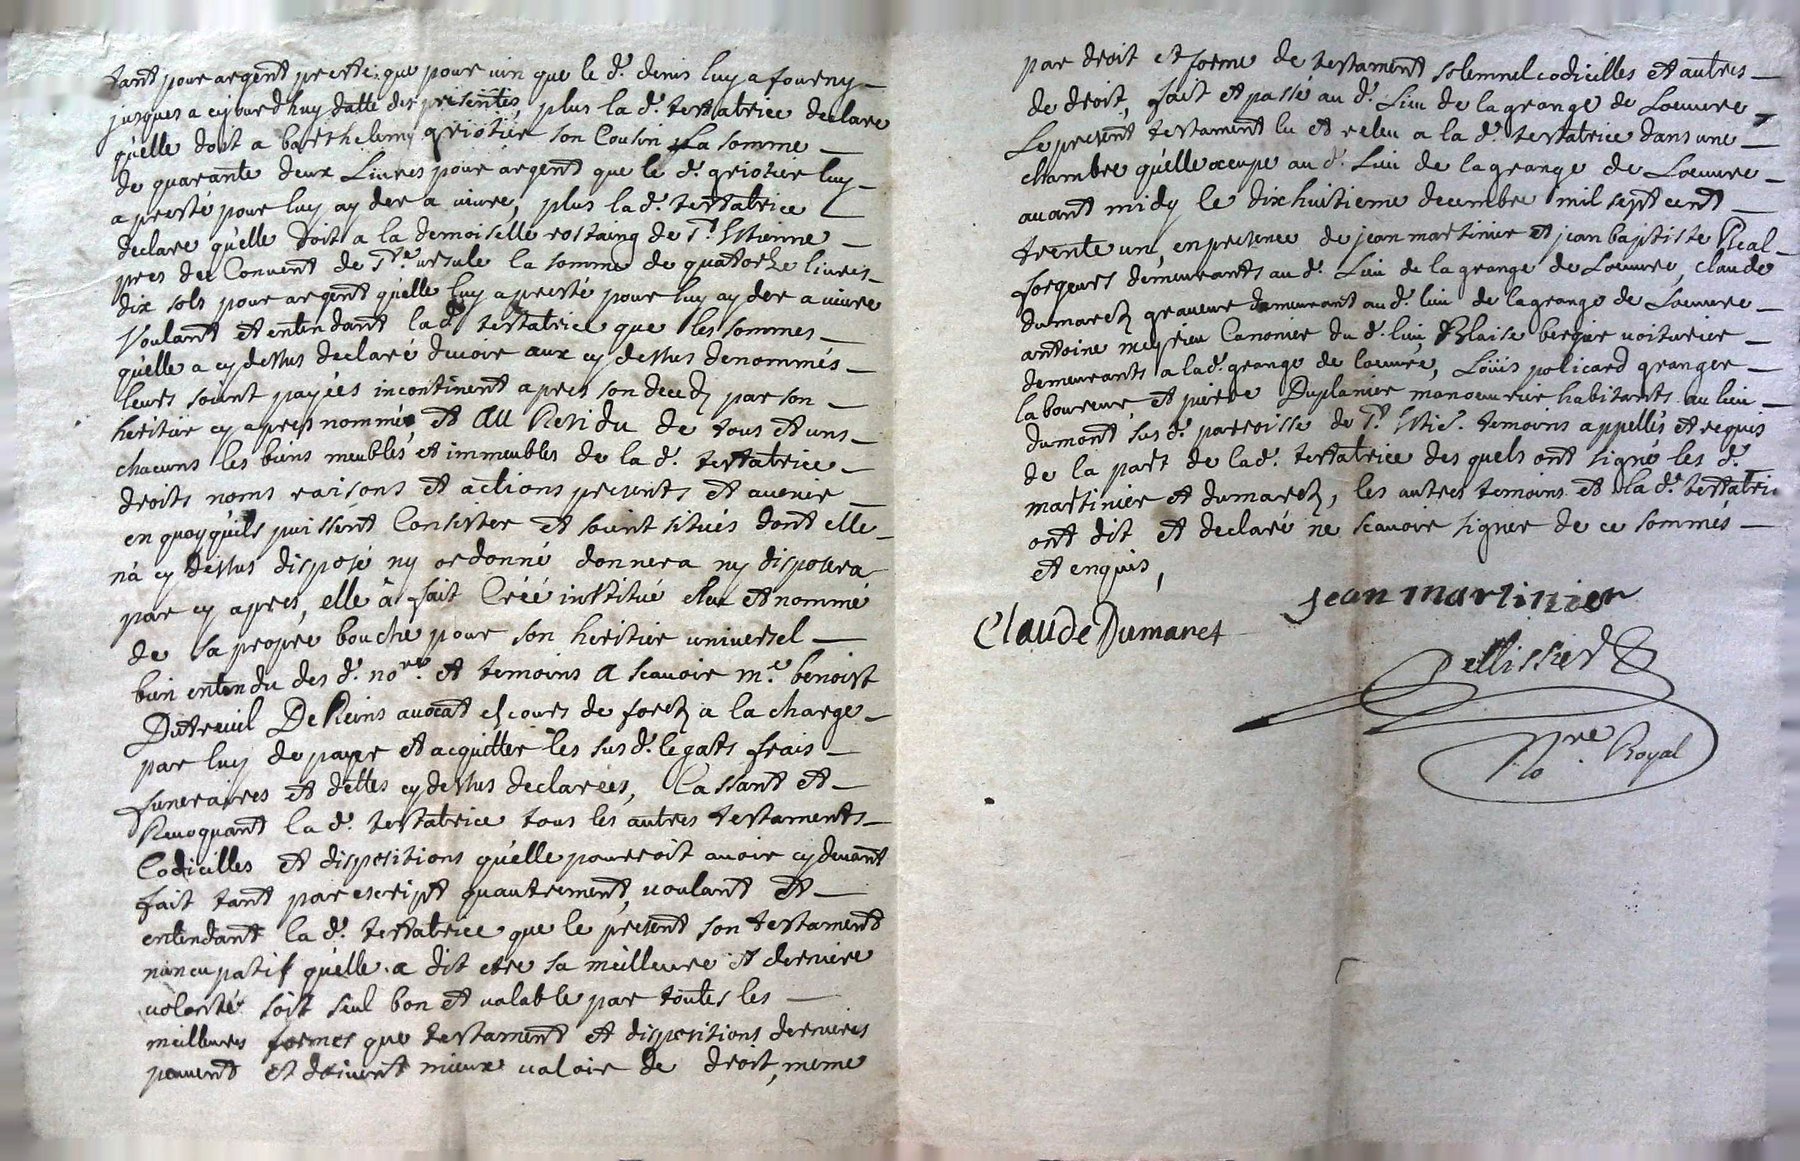 tant pour argent presté que pour vin que le d.^t denis luy a fourny
jusques a cejourd'huy datte des présentes, plus la d.^e testatrice declare
qu'elle doit a barthelemy griotier son Cousin La somme
de quarante deux Livres pour argent que le d.^t griotier luy
a presté pour luy ayder a vivre, plus la d.^e testatrice
declare qu'elle doit a la demoiselle rostaing de S.^t Estienne
pres du Convent de S.^te ursule la somme de quatorze livres
dix sols pour argent qu'elle luy a presté pour luy ayder a vivre
Voulant et entendant lad.^e testatrice que les sommes
qu'elle a cy dessus declaré devoir aux cy dessus denommés
leurs soient payées incontinent apres son decedz par son
heritier cy apres nommé et au Residu de tous et uns
chacuns les biens meubles et immeubles de la d.^e testatrice
droits noms raisons et actions presents et avenir
en quoy qu'ils puissent Consister et soient situés dont elle
n'a cy dessus disposé ny ordonné donnera ny disposera
par cy apres, elle à fait Créé institué eleu et nommé
de sa propre bouche pour son heritier universel
bien entendu des d.^t no^re. et temoins a scavoir m.^e benoist
Dutreuil De Reins avocat es cours de forez a la charge
par luy de payer et acquitter les sus d.^t legats frais
funeraires et dettes cy dessus declarées, Cassant et
Revoquant la d.^e testatrice tous les autres testaments
Codicilles et dispositions qu'elle pourroit avoir cy devant
fait tant par escript qu'autrement, voulant et
entendant la d.^e testatrice que le present son testament
nuncupatif qu'elle a dit etre sa meilleure et derniere
volonté soit seul bon et valable par toutes les
meilleures formes que testament et dispositions dernieres
peuvent et doivent mieux valoir de droit, meme
par droit et forme de testament solemnel codicilles et autres
de droit, fait et passé au d.^t Lieu de la grange de Loeuvre,
Le present testament lu et releu a la d.^e testatrice dans une
chambre qu'elle occupe au d.^t Lieu de la grange de Loeuvre
avant midy le dixhuitieme decembre mil sept cent
trente un, en presence de jean martinier et jean baptiste Real
forgeurs demeurants au d.^t Lieu de la grange de Loeuvre, claude
dumarez graveur demeurant au d.^t lieu de la grange de Loeuvre
antoine meyrieu Canonier du d.^t lieu, Blaise bergier voiturier
demeurants a la d.^e grange de loeuvre, Loüis policard granger
laboureur, et pierre Duplanier manoeuvrier habitants au lieu
dumont sus d.^e parroisse de S.^t temoins appellés et requis
de la part de lad.^e testatrice des quels ont signé les d.^t
martinier et dumarez, les autres temoins et la d.^e testatri
ont dit et declaré ne scavoir signer de ce sommés
et enquis,
Jean martinier
Claude Dumaret
Pellissier
No^re. Royal